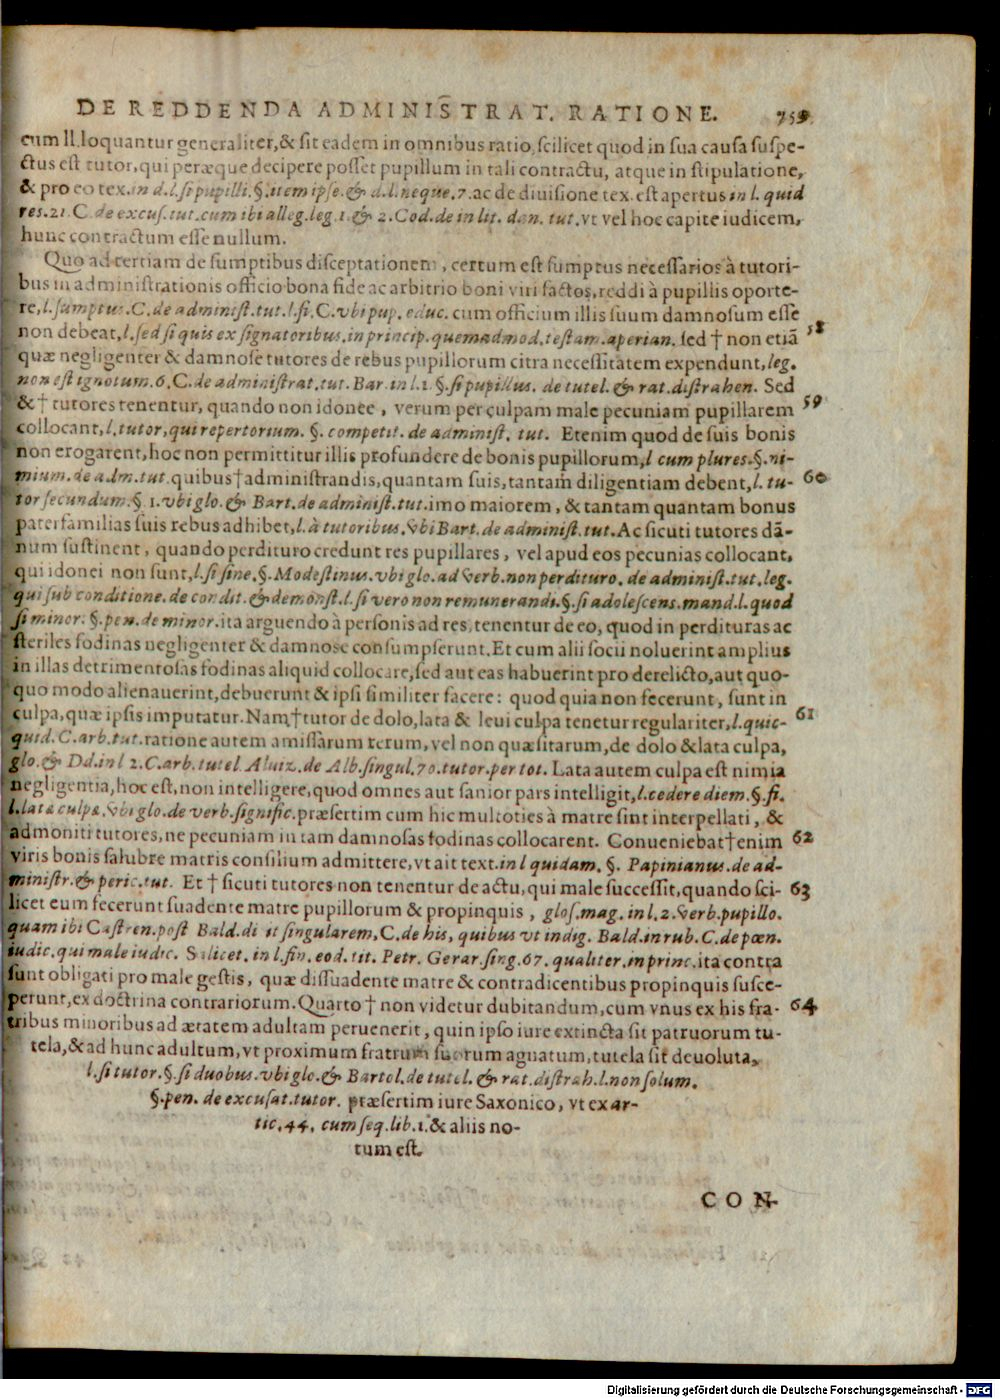 DE REDDENDA ADMINIST̄RAT. RATIONE. 759
cum ll. loquantur generaliter, & sit eadem in omnibus ratio, scilicet quod in sua causa suspe-
ctus est tutor, qui peræque decipere posset pupillum in tali contractu, atque in stipulatione,
& pro eo tex. in d. l. si pupilli. §. item ipse. & d. l. neque. 7. ac de diuisione tex. est apertus in l. quid
res. 21. C. de excus. tut. cum ibi alleg. leg. 1. & 2. Cod. de in lit. dan. tut. vt vel hoc capite iudicem,
hunc contractum esse nullum.
Quo ad tertiam de sumptibus disceptationem, certum est sumptus necessarios à tutori-
bus in administrationis officio bona fide ac arbitrio boni viri factos, reddi à pupillis oporte-
re, l. sumptus. C. de administ. tut. l. fi. C. vbi pup. educ. cum officium illis suum damnosum esse
non debeat, l. sed si quis ex signatoribus. in princip. quemadmod. testam. aperian. sed † non etiā 58
quæ negligenter & damnose tutores de rebus pupillorum citra necessitatem expendunt, leg.
non est ignotum. 6. C. de administrat. tut. Bar. in l. 1. §. si pupillus. de tutel. & rat. distrahen. Sed
& † tutores tenentur, quando non idonee, verum per culpam male pecuniam pupillarem 59
collocant, l. tutor, qui repertorium. §. competit. de administ. tut. Etenim quod de suis bonis
non erogarent, hoc non permittitur illis profundere de bonis pupillorum, l cum plures. §. ni-
mium. de adm. tut. quibus † administrandis, quantam suis, tantam diligentiam debent, l. tu- 60
tor secundum. §. 1. vbi glo. & Bart. de administ. tut. imo maiorem, & tantam quantam bonus
paterfamilias suis rebus adhibet, l. à tutoribus. vbi Bart. de administ. tut. Ac sicuti tutores dā-
num sustinent, quando perdituro credunt res pupillares, vel apud eos pecunias collocant,
qui idonei non sunt, l. si sine. §. Modestinus. vbi glo. ad verb. non perdituro. de administ. tut. leg.
qui sub conditione. de condit. & demonst. l. si vero non remunerandi. §. si adolescens. mand. l. quod
si minor. §. pen. de minor. ita arguendo à personis ad res, tenentur de eo, quod in perdituras ac
steriles fodinas negligenter & damnose consumpserunt. Et cum alii socii noluerint amplius
in illas detrimentosas fodinas aliquid collocare, sed aut eas habuerint pro derelicto, aut quo-
quo modo alienauerint, debuerunt & ipsi similiter facere: quod quia non fecerunt, sunt in
culpa, quæ ipsis imputatur. Nam † tutor de dolo, lata & leui culpa tenetur regulariter, l. quic- 61
quid. C. arb. tut. ratione autem amissarum rerum, vel non quæsitarum, de dolo & lata culpa,
glo. & Dd. in l 2. C. arb. tutel. Aluiz. de Alb. singul. 70. tutor. per tot. Lata autem culpa est nimia
negligentia, hoc est, non intelligere, quod omnes aut sanior pars intelligit, l. cedere diem. §. fi.
l. lata culpa. vbi glo. de verb. signific. præsertim cum hic multoties à matre sint interpellati, &
admoniti tutores, ne pecuniam in tam damnosas fodinas collocarent. Conueniebat † enim 62
viris bonis salubre matris consilium admittere, vt ait text. in l quidam. §. Papinianus. de ad-
ministr. & peric. tut. Et † sicuti tutores non tenentur de actu, qui male successit, quando sci- 63
licet eum fecerunt suadente matre pupillorum & propinquis, glos. mag. in l. 2. verb. pupillo.
quam ibi Castren. post Bald. dicit singularem, C. de his, quibus vt indig. Bald. in rub. C. de pœn.
iudic. qui male iudic. Salicet. in l. fin. eod. tit. Petr. Gerar. sing. 67. qualiter. in princ. ita contra
sunt obligati pro male gestis, quæ dissuadente matre & contradicentibus propinquis susce-
perunt, ex doctrina contrariorum. Quarto † non videtur dubitandum, cum vnus ex his fra- 64
tribus minoribus ad ætatem adultam peruenerit, quin ipso iure extincta sit patruorum tu-
tela, & ad hunc adultum, vt proximum fratrum suorum agnatum, tutela sit deuoluta,
l. si tutor. §. si duobus. vbi glo. & Bartol. de tutel. & rat. distrah. l. non solum.
§. pen. de excusat. tutor. præsertim iure Saxonico, vt ex ar-
tic. 44. cum seq. lib. 1. & aliis no-
tum est.
CON-
Digitalisierung gefördert durch die Deutsche Forschungsgemeinschaft - DFG